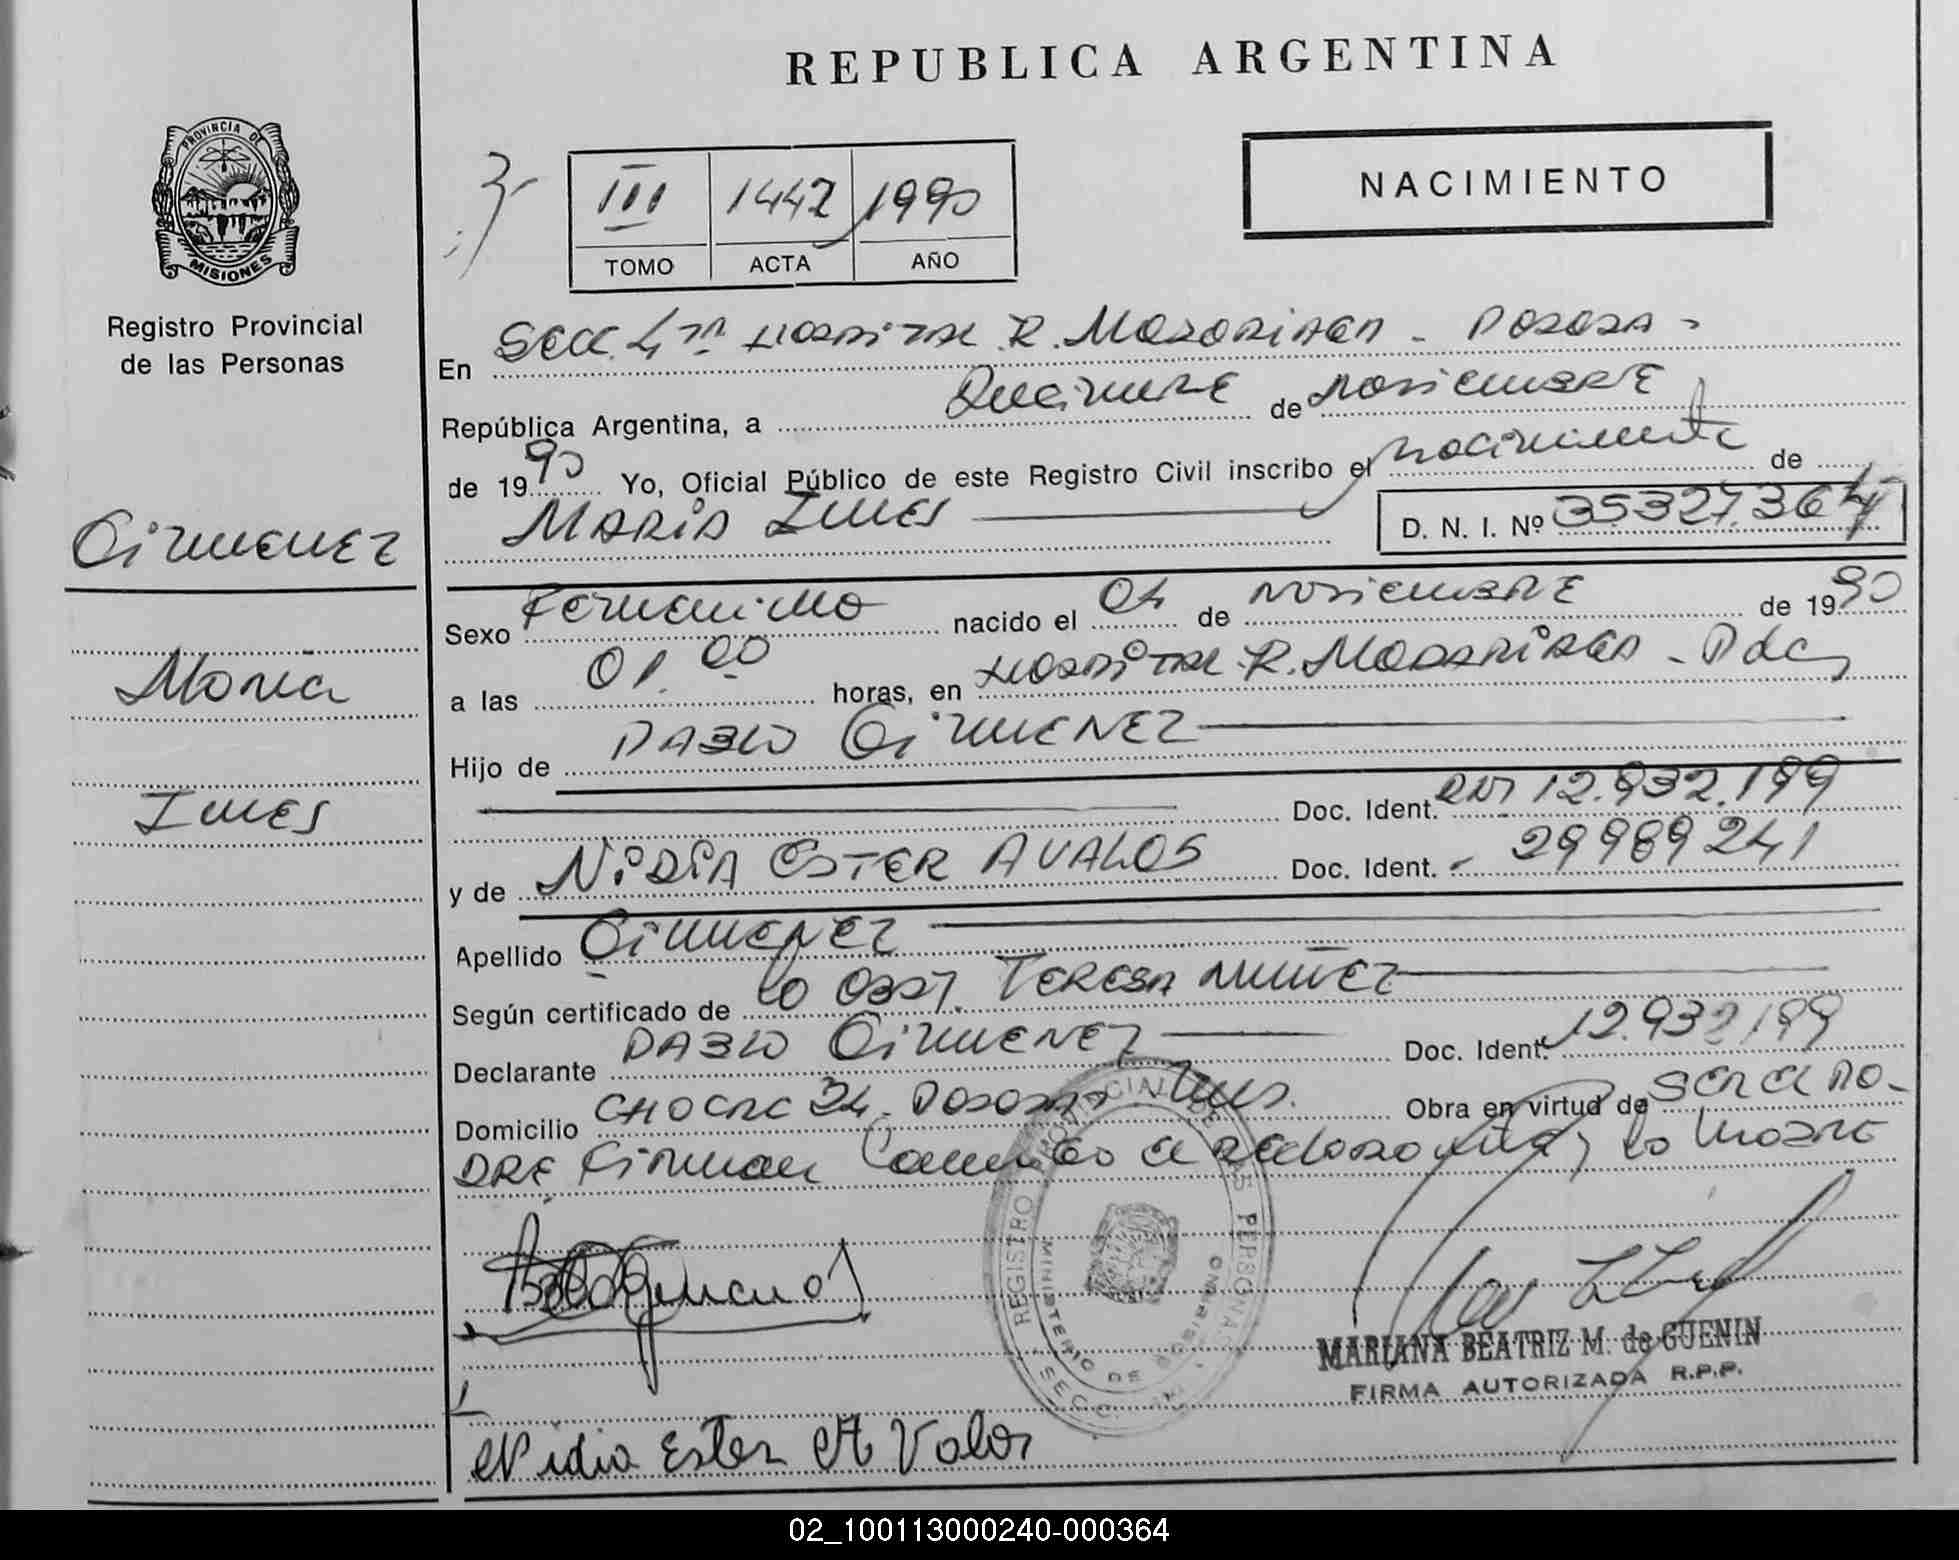 REPUBLICA ARGENTINA
PROVINCIA DE
MISIONES
Registro Provincial
de las Personas
III 1442 1990
TOMO ACTA AÑO
NACIMIENTO
En Secc. 4ta Hospital R. Madariaga - Posadas -
República Argentina, a de Noviembre
de 1990 Yo, Oficial Público de este Registro Civil inscribo el nacimiento de
MARIA INES D. N. I. Nº 35327.364
Gimenez
Maria
Ines
Sexo Femenino nacido el 04 de Noviembre de 1990
a las 01.00 horas, en Hospital R. Madariaga - Pdas
Hijo de PABLO GIMENEZ
Doc. Ident. DNI 12.932.199
y de NiDiA ESTER AVALOS Doc. Ident. - 29989241
Apellido GIMENEZ
Según certificado de la Obst. TERESA NUÑEZ
Declarante PABLO GIMENEZ Doc. Ident. 12.932199
Domicilio CHACRA 34. Posadas Mns. Obra en virtud de SER EL PA-
DRE Firman la madre
REGISTRO PROVINCIAL DE LAS PERSONAS
MINISTERIO DE GOBIERNO
SECC.
MARIANA BEATRIZ M. de GUENIN
FIRMA AUTORIZADA R.P.P.
Nidia Ester A Valos
02_100113000240-000364